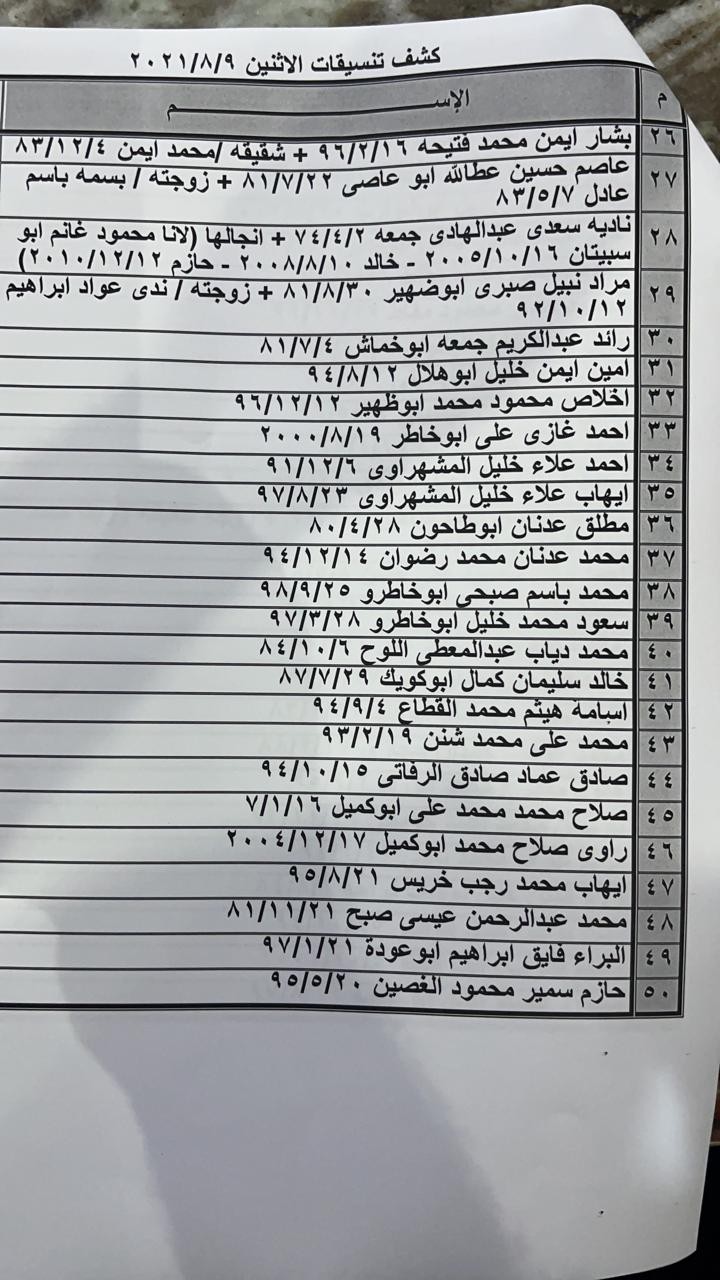 كشف تنسيقات الاثنين ٢٠٢١/٨/٩
م الإســـــــــــم
٢٦ بشار ايمن محمد فتيحه ٩٦/٢/١٦ + شقيقه /محمد ايمن ٨٣/١٢/٤
٢٧ عاصم حسين عطالله ابو عاصى ٨١/٧/٢٢ + زوجته / بسمه باسم
عادل ٨٣/٥/٧
٢٨ ناديه سعدى عبدالهادى جمعه ٧٤/٤/٢ + انجالها (لانا محمود غانم ابو
سبيتان ٢٠٠٥/١٠/١٦ - خالد ٢٠٠٨/٨/١٠ - حازم ٢٠١٠/١٢/١٢)
٢٩ مراد نبيل صبرى ابوضهير ٨١/٨/٣٠ + زوجته / ندى عواد ابراهيم
٩٢/١٠/١٢
٣٠ رائد عبدالكريم جمعه ابوخماش ٨١/٧/٤
٣١ امين ايمن خليل ابوهلال ٩٤/٨/١٢
٣٢ اخلاص محمود محمد ابوظهير ٩٦/١٢/١٢
٣٣ احمد غازى على ابوخاطر ٢٠٠٠/٨/١٩
٣٤ احمد علاء خليل المشهراوى ٩١/١٢/٦
٣٥ ايهاب علاء خليل المشهراوى ٩٧/٨/٢٣
٣٦ مطلق عدنان ابوطاحون ٨٠/٤/٢٨
٣٧ محمد عدنان محمد رضوان ٩٤/١٢/١٤
٣٨ محمد باسم صبحى ابوخاطرو ٩٨/٩/٢٥
٣٩ سعود محمد خليل ابوخاطرو ٩٧/٣/٢٨
٤٠ محمد دياب عبدالمعطى اللوح ٨٤/١٠/٦
٤١ خالد سليمان كمال ابوكويك ٨٧/٧/٢٩
٤٢ اسامة هيثم محمد القطاع ٩٤/٩/٤
٤٣ محمد على محمد شنن ٩٣/٢/١٩
٤٤ صادق عماد صادق الرفاتى ٩٤/١٠/١٥
٤٥ صلاح محمد محمد على ابوكميل ٧/١/١٦
٤٦ راوى صلاح محمد ابوكميل ٢٠٠٤/١٢/١٧
٤٧ ايهاب محمد رجب خريس ٩٥/٨/٢١
٤٨ محمد عبدالرحمن عيسى صبح ٨١/١١/٢١
٤٩ البراء فايق ابراهيم ابوعودة ٩٧/١/٢١
٥٠ حازم سمير محمود الغصين ٩٥/٥/٢٠